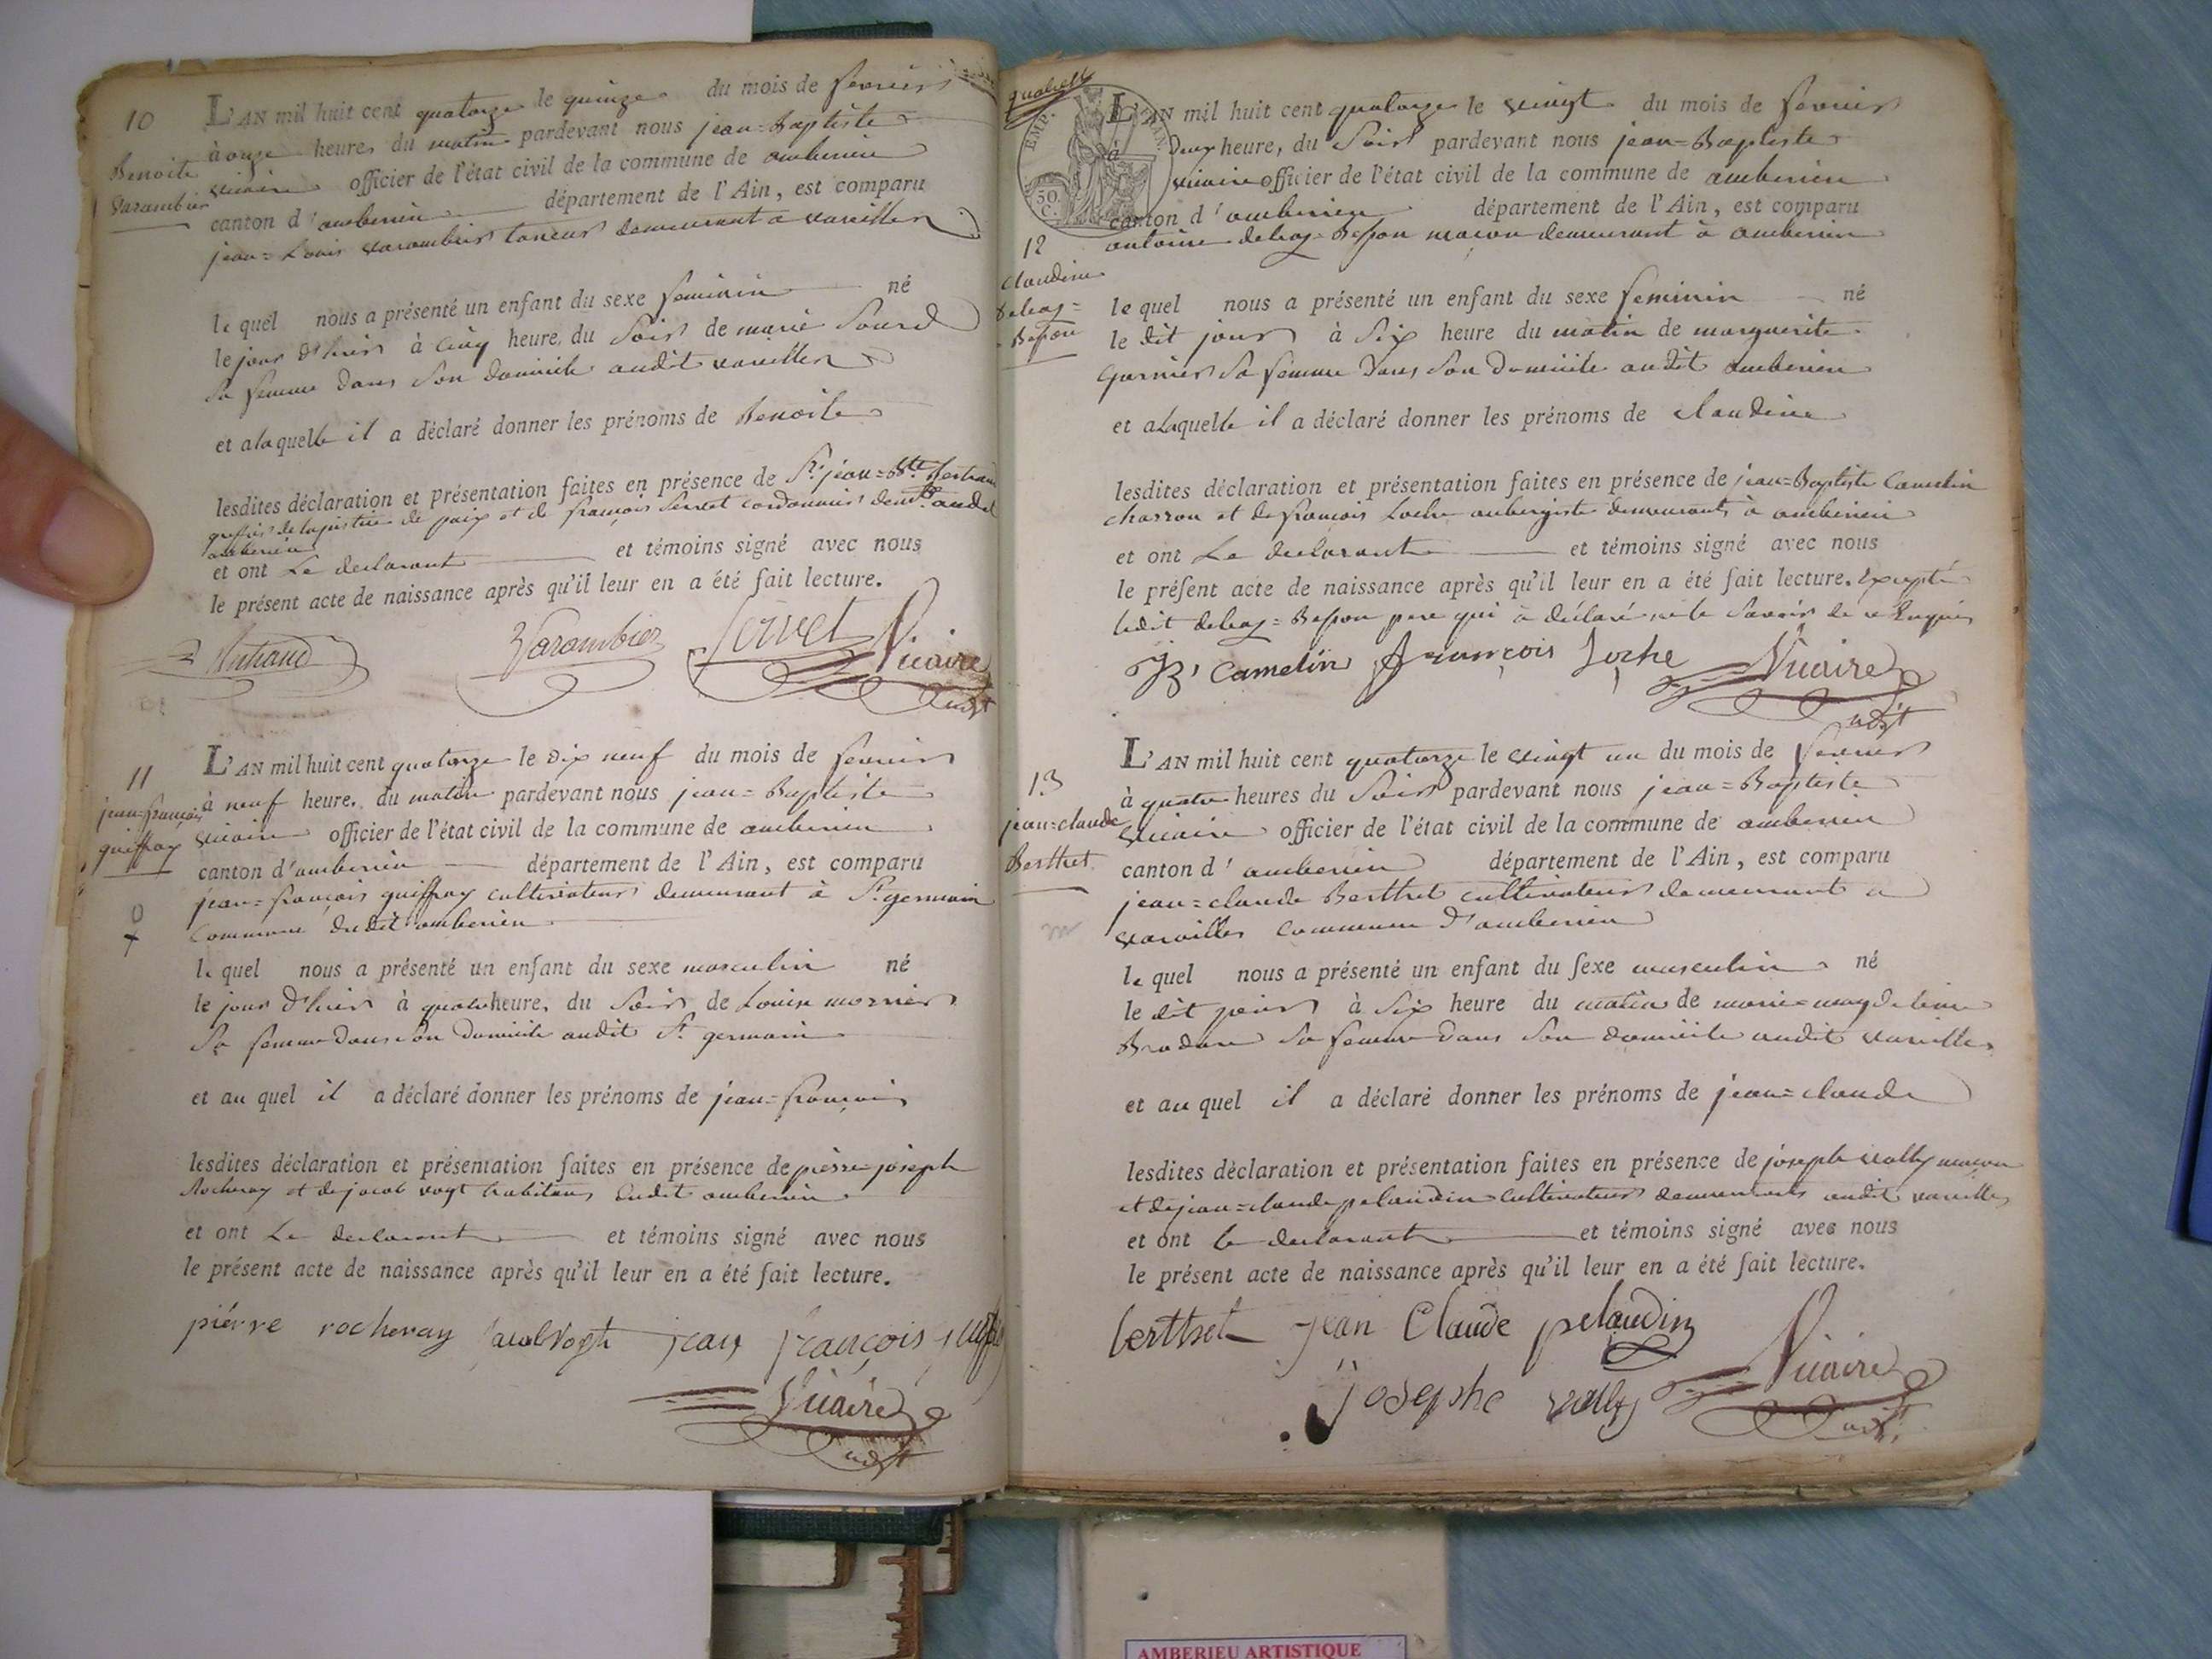 10
Benoite
Varambier
L'AN mil huit cent quatorze le quinze du mois de fevrier
à onze heures du matin pardevant nous jean=Baptiste
Vicaire officier de l'état civil de la commune de amberieu
canton d'amberieu département de l'Ain, est comparu
jean=Louis Varambier tanneur demeurant a vareilles
le quel nous a présenté un enfant du sexe feminin né
le jour d'hier à cinq heure, du soir de marie Sourd
Sa femme dans Son domicile audit vareilles
et a laquelle il a déclaré donner les prénoms de Benoite
lesdites déclaration et présentation faites en présence de Sr. jean=Bte.
greffier de la justice de paix et de françois Servet cordonnier demt. audit
amberieu
et ont Le declarant et témoins signé avec nous
le présent acte de naissance après qu'il leur en a été fait lecture.
Varambier Servet Vicaire
adjt
11
jean=françois
guiffray
L'AN mil huit cent quatorze le dix neuf du mois de fevrier
à neuf heure, du matin pardevant nous jean=Baptiste
Vicaire officier de l'état civil de la commune de amberieu
canton d'amberieu département de l'Ain, est comparu
jean=françois guiffray cultivateur demeurant à St. germain
Commune dudit amberieu
le quel nous a présenté un enfant du sexe masculin né
le jour d'hier à quatre heure, du Soir de Louise mornier
Sa femme dans son domicile audit St. germain
et au quel il a déclaré donner les prénoms de jean=françois
lesdites déclaration et présentation faites en présence de pierre joseph
Rocheray et de jacob vogt habitans dudit amberieu
et ont Le declarant et témoins signé avec nous
le présent acte de naissance après qu'il leur en a été fait lecture.
piérre rocheray jacob vogt jean françois
Vicaire
adjt
EMP. FRAN.
50
C.
12
Claudine
Debay=
Besson
L'AN mil huit cent quatorze le vingt du mois de fevrier
à deux heure, du Soir pardevant nous jean=Baptiste
Vicaire officier de l'état civil de la commune de amberieu
canton d'amberieu département de l'Ain, est comparu
antoine debay=Besson maçon demeurant à amberieu
le quel nous a présenté un enfant du sexe feminin né
le dit jour à Six heure du matin de marguerite
Garnier Sa femme dans Son domicile audit amberieu
et a laquelle il a déclaré donner les prénoms de claudine
lesdites déclaration et présentation faites en présence de jean=Baptiste Camelin
charron et de françois Loche aubergiste demeurants à amberieu
et ont Le declarant et témoins signé avec nous
le présent acte de naissance après qu'il leur en a été fait lecture. Excepté
ledit debay=Besson pere qui à déclaré ne le Savoir de ce Enquis
JB Camelin françois Loche Vicaire
adjt
13
jean=claude
Berthet
L'AN mil huit cent quatorze le vingt un du mois de fevrier
à quatre heures du Soir pardevant nous jean=Baptiste
Vicaire officier de l'état civil de la commune de amberieu
canton d'amberieu département de l'Ain, est comparu
jean=claude Berthet cultivateur demeurant a
vareilles commune d'amberieu
le quel nous a présenté un enfant du sexe masculin né
le dit jour à Six heure du matin de marie=magdeleine
Sa femme dans Son domicile audit vareilles
et au quel il a déclaré donner les prénoms de jean=claude
lesdites déclaration et présentation faites en présence de joseph vally maçon
et de jean=claude pelaudin cultivateur demeurants audit vareilles
et ont le declarant et témoins signé avec nous
le présent acte de naissance après qu'il leur en a été fait lecture.
berthet jean Claude pelaudin
josephe vally Vicaire
adjt
AMBERIEU ARTISTIQUE